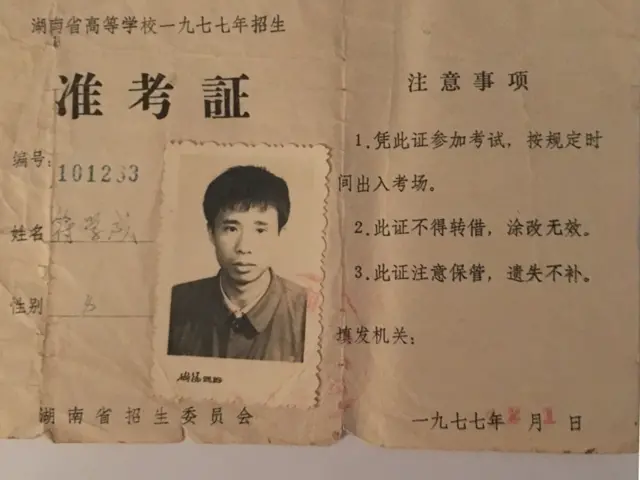 湖南省高等学校一九七七年招生
准考証
编号: 101233
姓名 蒋学成
性别
湖南省招生委员会
注意事项
1.凭此证参加考试，按规定时
间出入考场。
2.此证不得转借，涂改无效。
3.此证注意保管，遗失不补。
填发机关：
一九七七年 月1日